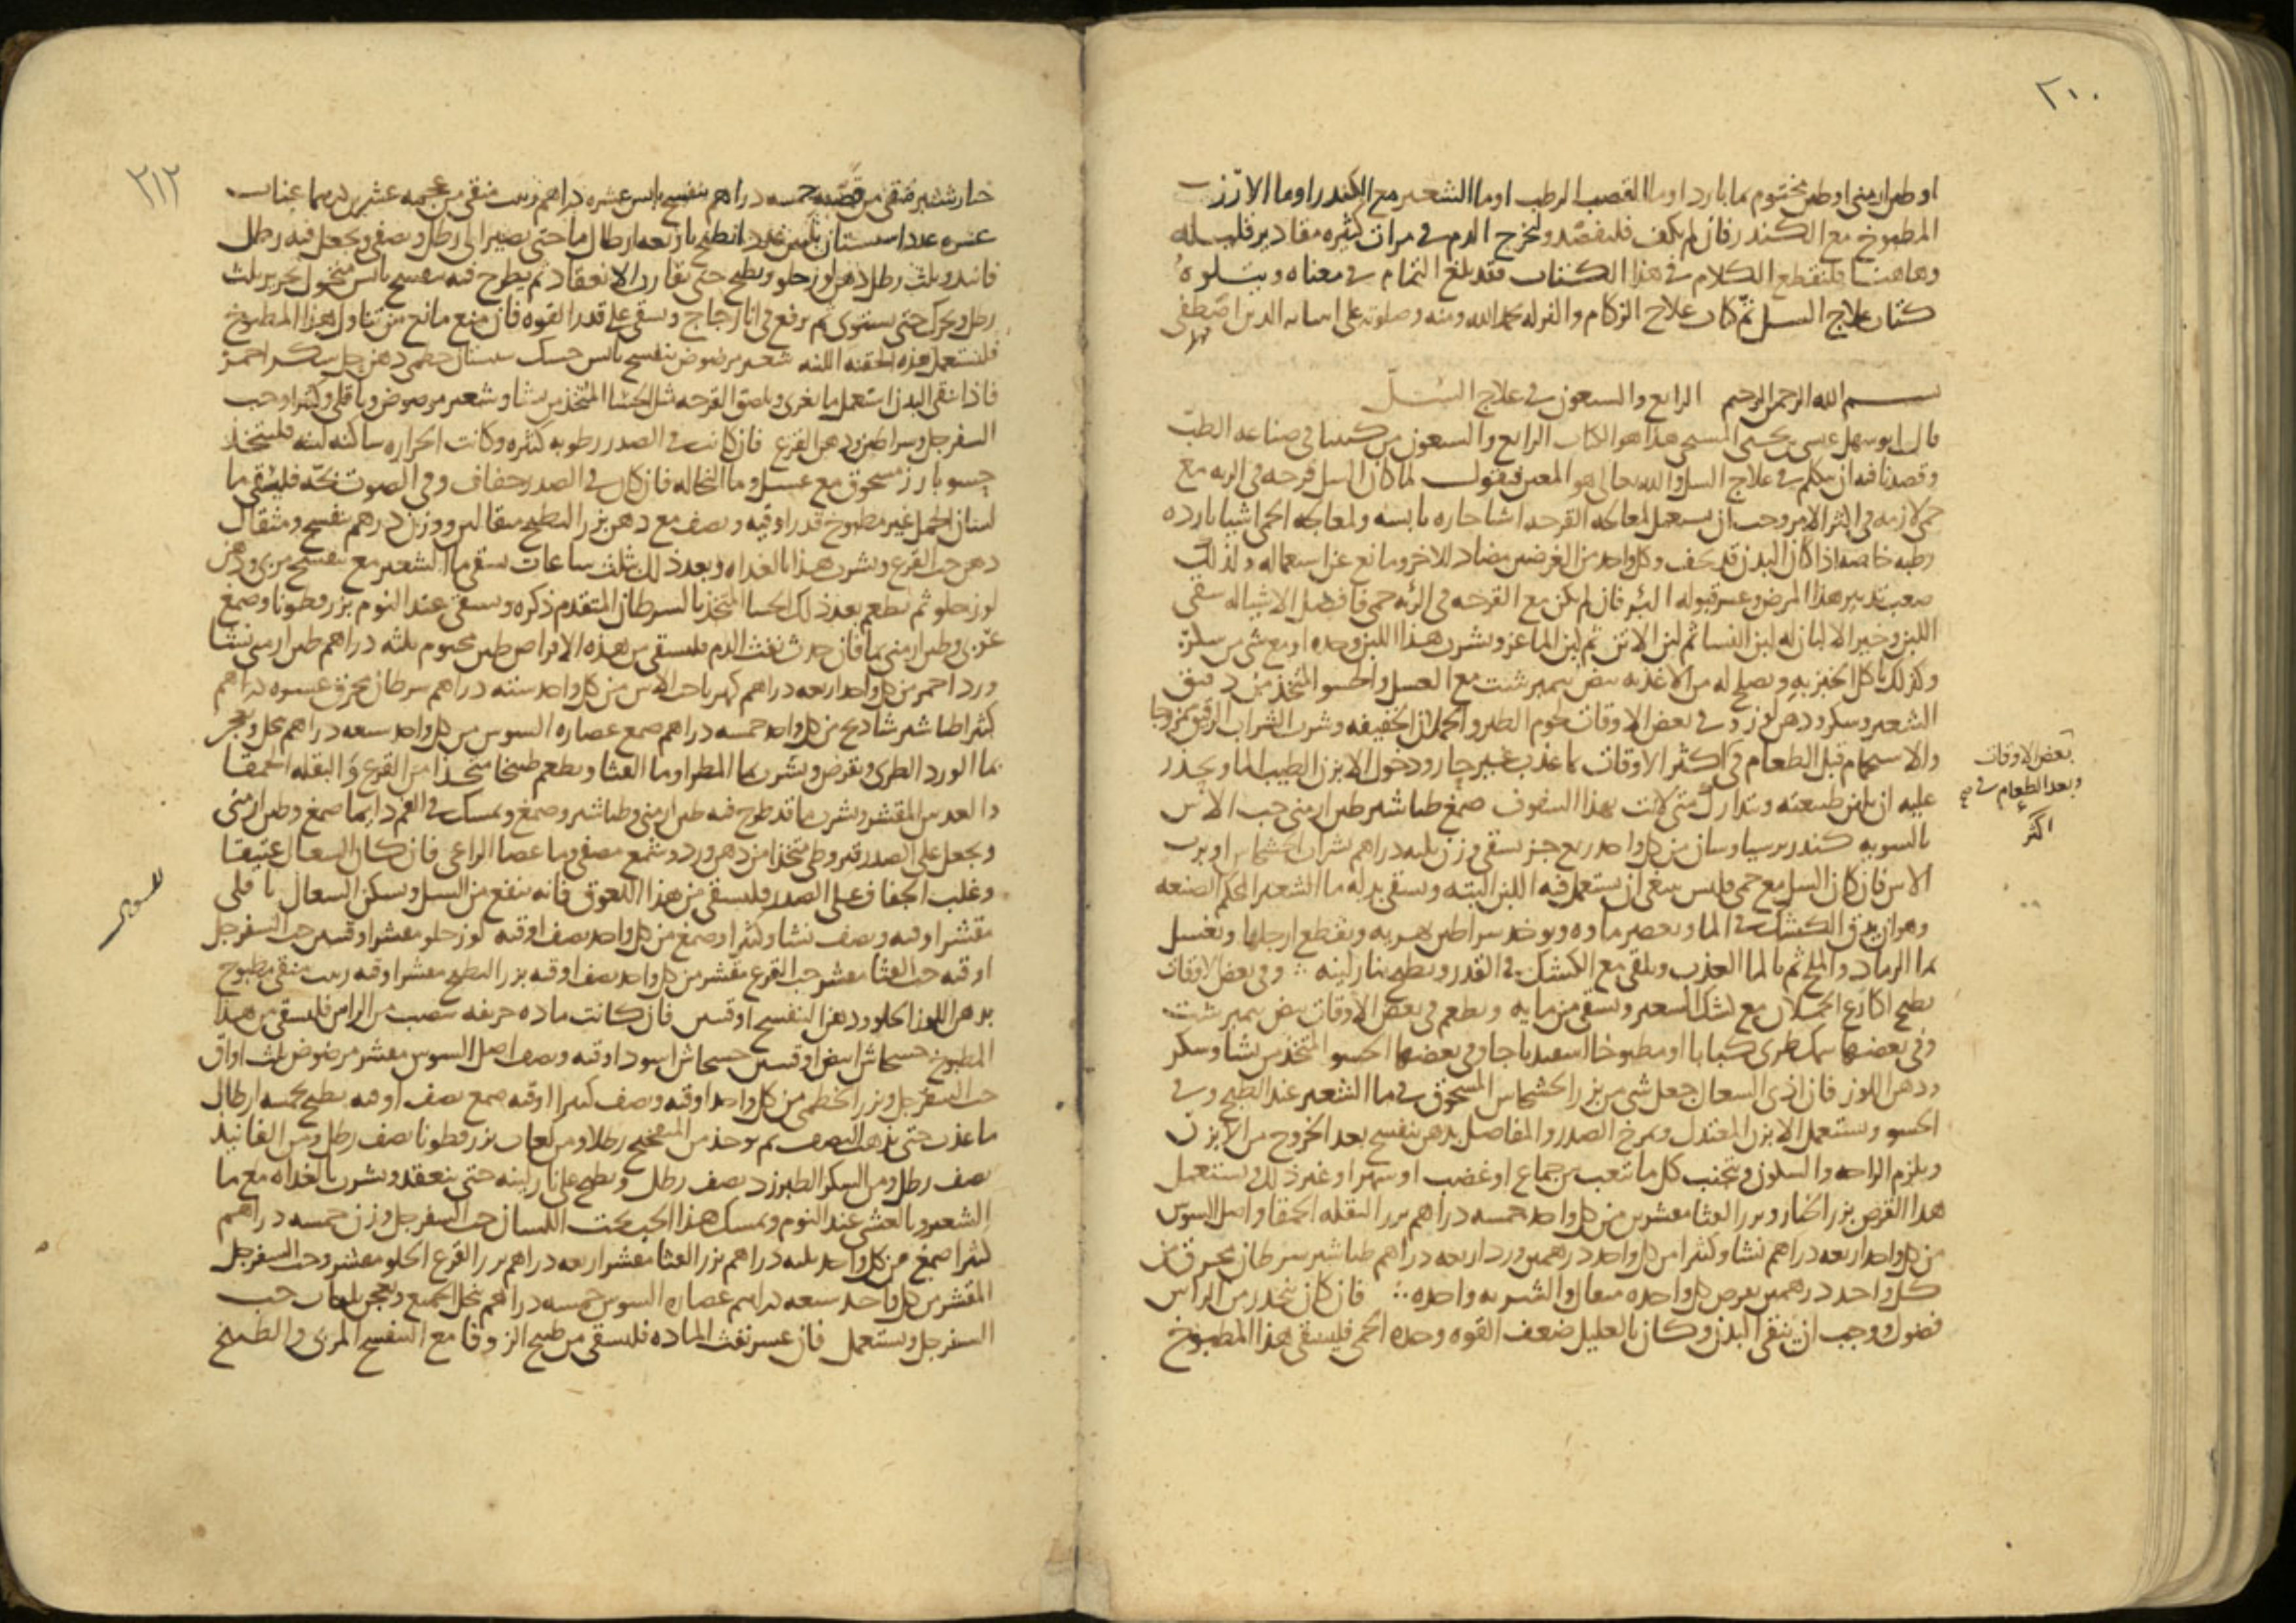 ٢١٠
او طين ارمني او طين مختوم بماء بارد او ماء القصب الرطب او ماء الشعير مع الكندر او ماء الارز
المطبوخ مع الكندر فان لم يكف فليفصد وليخرج الدم في مرات كثيره مقادير قليله
وهاهنا فلنقطع الكلام في هذا الكتاب فقد بلغ التمام في معناه ويتلوه
كتاب علاج السل ثم كتاب علاج الزكام والنزله بحمد الله ومنه وصلوته على انبيائه الذين اصطفى
بسم الله الرحمن الرحيم الرابع والسبعون في علاج السل
قال ابو سهل عيسى بن يحيى المسيحي هذا هو الكتاب الرابع والسبعون من كتبنا في صناعه الطب
وقصدنا فيه ان نتكلم في علاج السل والله تعالى هو المعين فنقول لما كان السل قرحه في الريه مع
حمى لازمه في اكثر الامر وجب ان يستعمل لمعالجه القرحه اشيا حاره يابسه ولمعالجه الحمى اشيا بارده
رطبه خاصه اذا كان البدن قد نحف وكل واحد من الغرضين مضاد للاخر ومانع عن استعماله ولذلك
صعب تدبير هذا المرض وعسر قبوله البر فان لم يكن مع القرحه في الرئه حمى فافضل الاشيا له سقي
اللبن وخير الالبان له لبن النسا ثم لبن الاتن ثم لبن الماعز ويشرب هذا اللبن وحده او مع شي من سكر
وكذلك ياكل الخبز به ويصلح له من الاغذيه بيض نيمبرشت مع العسل والحسو المتخذ من دقيق
الشعير وسكر ودهن لوز و في بعض الاوقات لحوم الطير والحملان الخفيفه وشرب الشراب الرقيق ممزوجا
والاستحمام قبل الطعام في اكثر الاوقات بماء عذب غير حار ودخول الابزن الطيب الما ويحذر
بعض الاوقات
وبعد الطعام في
اكثر
عليه ان تلين طبيعته وتدارك متى لانت بهذا السفوف صمغ طباشير طين ارمني حب الاس
بالسويه كندر من كل واحد ربع جز يسقى وزن ثلثه دراهم بشراب الخشخاش او برب
الاس فان كان السل مع حمى فليس ينبغي ان يستعمل فيه اللبن البته ويسقى بدله ما الشعير المحكم الصنعه
وهو ان يدق الكشك في الما ويعصر ماوه ويوخذ سراطين نهريه ويقطع ارجلها ويغسل
بما الرماد والملح ثم بالما العذب ويلقى مع الكشك في القدر ويطبخ بنار لينه وفي بعض الاوقات
يطبخ اكارع الحملان مع كشك الشعير ويسقى من مايه ويطعم في بعض الاوقات بيض نيمبرشت
وفي بعضها سمك طري كبابا او مطبوخا اسفيدباجا وفي بعضها الحسو المتخذ من نشا وسكر
ودهن اللوز فان اذى السعال جعل شي من بزر الخشخاش المسحوق في ما الشعير عند الطبخ وفي
الحسو ويستعمل الابزن المعتدل ويمرخ الصدر والمفاصل بدهن بنفسج بعد الخروج من الابزن
ويلزم الراحه والسكون ويجنب كل ما تعب من جماع او غضب او سهر او غير ذلك ويستعمل
هذا القرص بزر الخيار وبزر القثا مقشرين من كل واحد خمسه دراهم بزر البقله الحمقا واصل السوس
من كل واحد اربعه دراهم نشا وكثيرا من كل واحد درهمين ورد اربعه دراهم طباشير سرطان محرق من
كل واحد درهمين يقرص كل واحده مثقال والشربه واحده فان كان ينحدر من الراس
فضول ووجب ان ينقى البدن وكان بالعليل ضعف القوه وحده الحمى فليسقى هذا المطبوخ
٢١٢
خيارشنبر منقى من قصبه خمسه دراهم بنفسج يابس عشره دراهم زبيب منقى من عجمه عشرين درهما عناب
عشره عددا سبستان ثلثين عددا يطبخ باربعه ارطال ما حتى يصير الى رطل ويصفى ويجعل فيه رطل
فانيد وثلث رطل دهن لوز حلو ويطبخ حتى يقارب الانعقاد ثم يطرح فيه بنفسج يابس منخول بحرير ثلث
رطل ويحرك حتى يستوي ثم يرفع في انا زجاج ويسقى على قدر القوه فان منع مانع من تناول هذا المطبوخ
فليستعمل هذه الحقنه اللينه شعير مرضوض بنفسج يابس حسك سبستان خطمي دهن حل سكر احمر
فاذا نقي البدن استعمل ما يغري ويلصق القرحه مثل الحسا المتخذ من نشا وشعير مرضوض وباقلي وكثيرا وحب
السفرجل وسراطين ودهن القرع فان كانت في الصدر رطوبه كثيره وكانت الحراره ساكنه لينه فليتخذ
حسو بارز مسحوق مع عسل وما النخاله فان كان في الصدر جفاف وفي الصوت بحه فليسقى ما
لسان الحمل غير مطبوخ قدر اوقيه ونصف مع دهن بزر البطيخ مثقالين ووزن درهم بنفسج ومثقال
دهن حب القرع ويشرب هذا بالغداه وبعد ذلك بثلث ساعات يسقى ما الشعير مع بنفسج مربى ودهن
لوز حلو ثم يطعم بعد ذلك الحسا المتخذ بالسرطان المتقدم ذكره ويسقى عند النوم بزر قطونا وصمغ
عربي وطين ارمني بما فان حدث نفث الدم فليسقى من هذه الاقراص طين مختوم ثلثه دراهم طين ارمني نشا
ورد احمر من كل واحد اربعه دراهم كهربا حب الاس من كل واحد سته دراهم سرطان محرق عشره دراهم
كثيرا طباشير شادنج من كل واحد خمسه دراهم صمغ عصاره السوس من كل واحد سبعه دراهم ينخل ويعجن
بما الورد الطري ويقرص ويشرب بما المطر او ما القثا ويطعم طبيخا متخذا من القرع والبقله الحمقا
والعدس المقشر ويشرب ما قد طرح فيه طين ارمني وطباشير وصمغ ويمسك في الفم دايما صمغ وطين ارمني
ويجعل على الصدر قيروطي متخذا من دهن ورد وشمع مصفى وما عصا الراعي فان كان السعال عتيقا
وغلب الجفاف على الصدر فليسقى من هذا اللعوق فانه ينفع من السل ويسكن السعال باقلي
مقشر اوقيه ونصف نشا وكثيرا وصمغ من كل واحد نصف اوقيه لوز حلو مقشر اوقيتين حب السفرجل
اوقيه حب القثا مقشر حب القرع مقشر من كل واحد نصف اوقيه بزر البطيخ مقشر اوقيه زبيب منقى مطبوخ
بدهن اللوز الحلو ودهن البنفسج اوقيتين فان كانت ماده حريفه تنصب من الراس فليسقى من هذا
المطبوخ خشخاش ابيض اوقيتين خشخاش اسود اوقيه ونصف اصل السوس مقشر مرضوض ثلث اواق
حب السفرجل وبزر الخطمي من كل واحد اوقيه ونصف كثيرا اوقيه صمغ نصف اوقيه يطبخ بخمسه ارطال
ما عذب حتى يذهب النصف ثم يوخذ من رطلا ومن لعاب بزر قطونا نصف رطل ومن الفانيد
نصف رطل ومن السكر الطبرزد نصف رطل ويطبخ على نار لينه حتى ينعقد ويشرب بالغداه مع ما
الشعير وبالعشي عند النوم ويمسك هذا الحب تحت اللسان حب السفرجل وزن خمسه دراهم
كثيرا صمغ من كل واحد ثلثه دراهم بزر القثا مقشر اربعه دراهم بزر القرع الحلو مقشر وحب السفرجل
المقشر من كل واحد سبعه دراهم عصاره السوس خمسه دراهم ينخل الجميع ويعجن بلعاب حب
السفرجل ويستعمل فان عسر نفث الماده فليسقى من طبيخ الزوفا مع البنفسج المربى والطبيخ